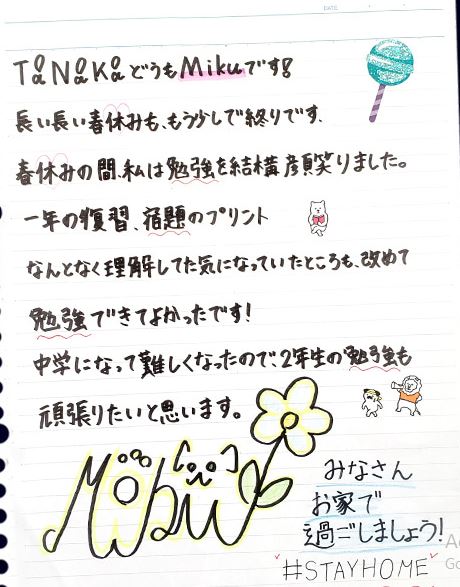 DATE
TaNaKaどうもMikuです!
長い長い春休みも、もう少しで終りです、
春休みの間、私は勉強を結構顔笑りました。
一年の復習、宿題のプリント
なんとなく理解してた気になっていたところも、改めて
勉強できてよかったです!
中学になって難しくなったので、2年生の勉強も
頑張りたいと思います。
みなさん
お家で
過ごしましょう!
#STAYHOME